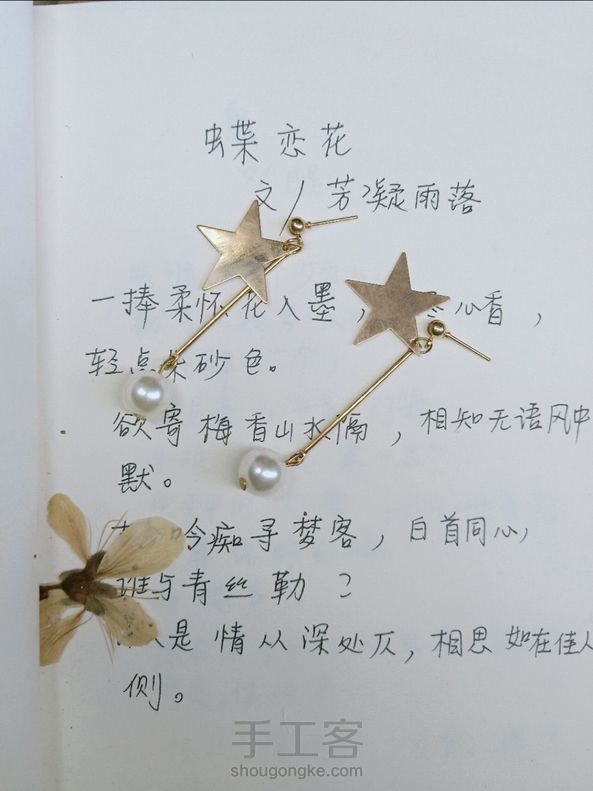 蝶恋花
文/芳凝雨落
一捧柔怀花入墨,心香,
轻点朱砂色。
欲寄梅香山水隔,相知无语风中
默。
吟痴寻梦客,白首同心,
谁与青丝勒?
是情从深处仄,相思如在佳人
侧。
手工客
shougongke.com